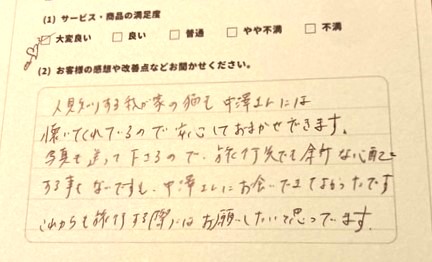 (1) サービス・商品の満足度
□ 大変良い □ 良い □ 普通 □ やや不満 □ 不満
(2) お客様の感想や改善点などお聞かせください。
人見知りする我が家の猫も中澤さんには
懐いてくれているので安心しておまかせできます。
写真も送って下さるので、旅行先でも余計な心配を
する事もないですし、中澤さんにお会いできてよかったです
これからも旅行する際にはお願いしたいと思っています。